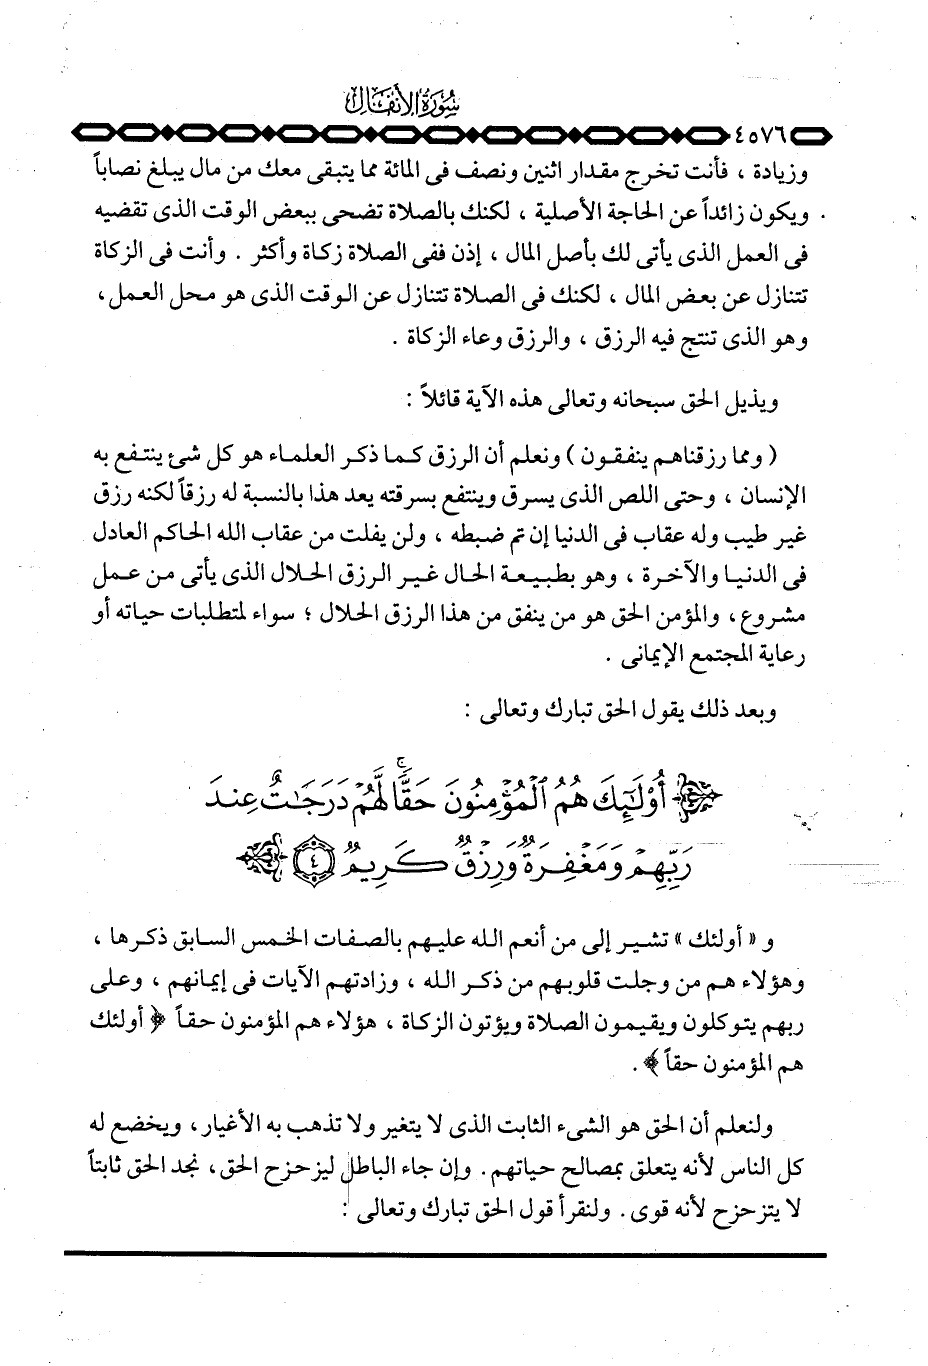 سورة الأنفال
٤٥٧٦
وزيادة ، فأنت تخرج مقدار اثنين ونصف فى المائة مما يتبقى معك من مال يبلغ نصاباً
ويكون زائداً عن الحاجة الأصلية ، لكنك بالصلاة تضحى ببعض الوقت الذى تقضيه
فى العمل الذى يأتى لك بأصل المال ، إذن ففى الصلاة زكاة وأكثر . وأنت فى الزكاة
تتنازل عن بعض المال ، لكنك فى الصلاة تتنازل عن الوقت الذى هو محل العمل،
وهو الذى تنتج فيه الرزق ، والرزق وعاء الزكاة .
ويذيل الحق سبحانه وتعالى هذه الآية قائلاً :
( ومما رزقناهم ينفقون ) ونعلم أن الرزق كما ذكر العلماء هو كل شئ ينتفع به
الإنسان ، وحتى اللص الذى يسرق وينتفع بسرقته يعد هذا بالنسبة له رزقاً لكنه رزق
غير طيب وله عقاب فى الدنيا إن تم ضبطه ، ولن يفلت من عقاب الله الحاكم العادل
فى الدنيا والآخرة ، وهو بطبيعة الحال غير الرزق الحلال الذى يأتى من عمل
مشروع، والمؤمن الحق هو من ينفق من هذا الرزق الحلال ؛ سواء لمتطلبات حياته أو
رعاية المجتمع الإيمانى .
وبعد ذلك يقول الحق تبارك وتعالى :
﴿ أُوْلَٰٓئِكَ هُمُ ٱلْمُؤْمِنُونَ حَقًّا ۚ لَّهُمْ دَرَجَٰتٌ عِندَ
رَبِّهِمْ وَمَغْفِرَةٌ وَرِزْقٌ كَرِيمٌ ٤ ﴾
و « أولئك » تشير إلى من أنعم الله عليهم بالصفات الخمس السابق ذكرها ،
وهؤلاء هم من وجلت قلوبهم من ذكر الله ، وزادتهم الآيات فى إيمانهم ، وعلى
ربهم يتوكلون ويقيمون الصلاة ويؤتون الزكاة ، هؤلاء هم المؤمنون حقاً ﴿ أولئك
هم المؤمنون حقاً ﴾ .
ولنعلم أن الحق هو الشىء الثابت الذى لا يتغير ولا تذهب به الأغيار، ويخضع له
كل الناس لأنه يتعلق بمصالح حياتهم . وإن جاء الباطل ليزحزح الحق ، نجد الحق ثابتاً
لا يتزحزح لأنه قوى . ولنقرأ قول الحق تبارك وتعالى :